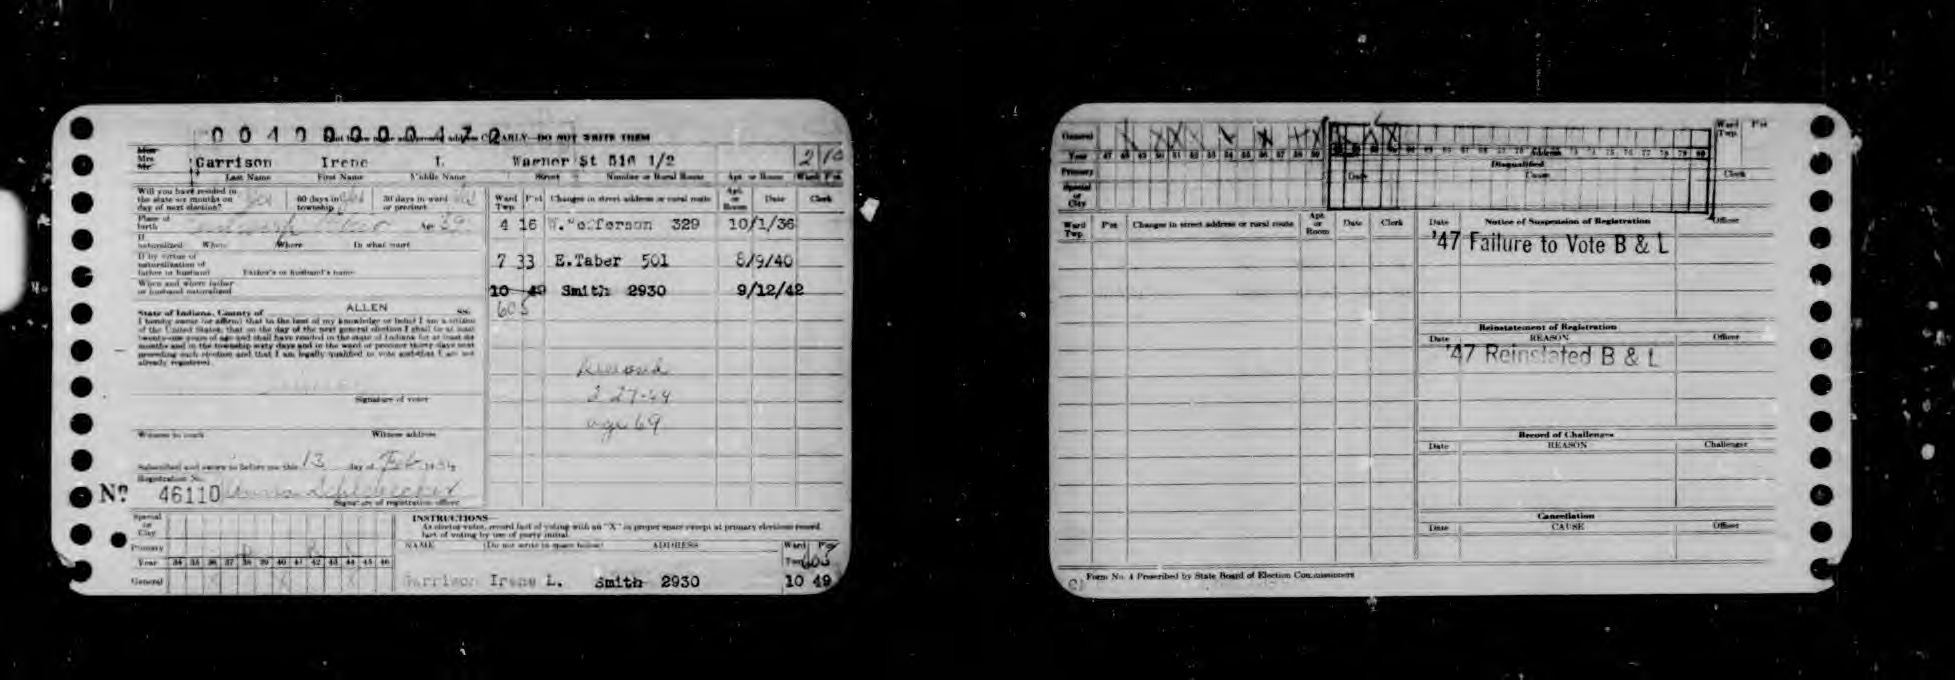 0040000472
CLEARLY—DO NOT WRITE THEM
Mrs. Garrison Irene L Warner St 516 1/2 2 10
Last Name First Name Middle Name Street Number or Rural Route Apt. or Room Ward Pct.
Will you have resided in the state six months on day of next election? Yes 60 days in township 30 days in ward or precinct
Ward Twp. Pct Changes in street address or rural route Apt. or Room Date Clerk
Place of birth Age 39
4 16 W. Jefferson 329 10/1/36
If naturalized When Where In what court
If by virtue of naturalization of father or husband Father's or husband's name
7 33 E.Taber 501 8/9/40
When and where father or husband naturalized
10 49 Smith 2930 9/12/42
605
State of Indiana, County of ALLEN SS:
I hereby swear (or affirm) that to the best of my knowledge or belief I am a citizen
of the United States, that on the day of the next general election I shall be at least
twenty-one years of age and shall have resided in the state of Indiana for at least six
months and in the township sixty days and in the ward or precinct thirty days next
preceding such election and that I am legally qualified to vote and that I am not
already registered.
2-27-64
age 69
Signature of voter
Witness to mark Witness address
Subscribed and sworn to before me this 13 day of Feb 1934
Registration No.
No 46110
Signature of registration officer
Special or City
Primary
Year 34 35 36 37 38 39 40 41 42 43 44 45 46
General
INSTRUCTIONS—
As elector votes, record fact of voting with an "X" in proper space except at primary elections record
fact of voting by use of party initial.
NAME (Do not write in space below) ADDRESS Ward Twp. Pct
605
Garrison Irene L. Smith 2930 10 49
General
Year 47 48 49 50 51 52 53 54 55 56 57 58 59
Primary
Special or City
Disqualified
Date Cause Clerk
Ward Twp. Pct
Ward Twp. Pct Changes in street address or rural route Apt. or Room Date Clerk
Date Notice of Suspension of Registration Officer
'47 Failure to Vote B & L
Reinstatement of Registration
Date REASON Officer
'47 Reinstated B & L
Record of Challenges
Date REASON Challenger
Cancellation
Date CAUSE Officer
Form No. 4 Prescribed by State Board of Election Commissioners